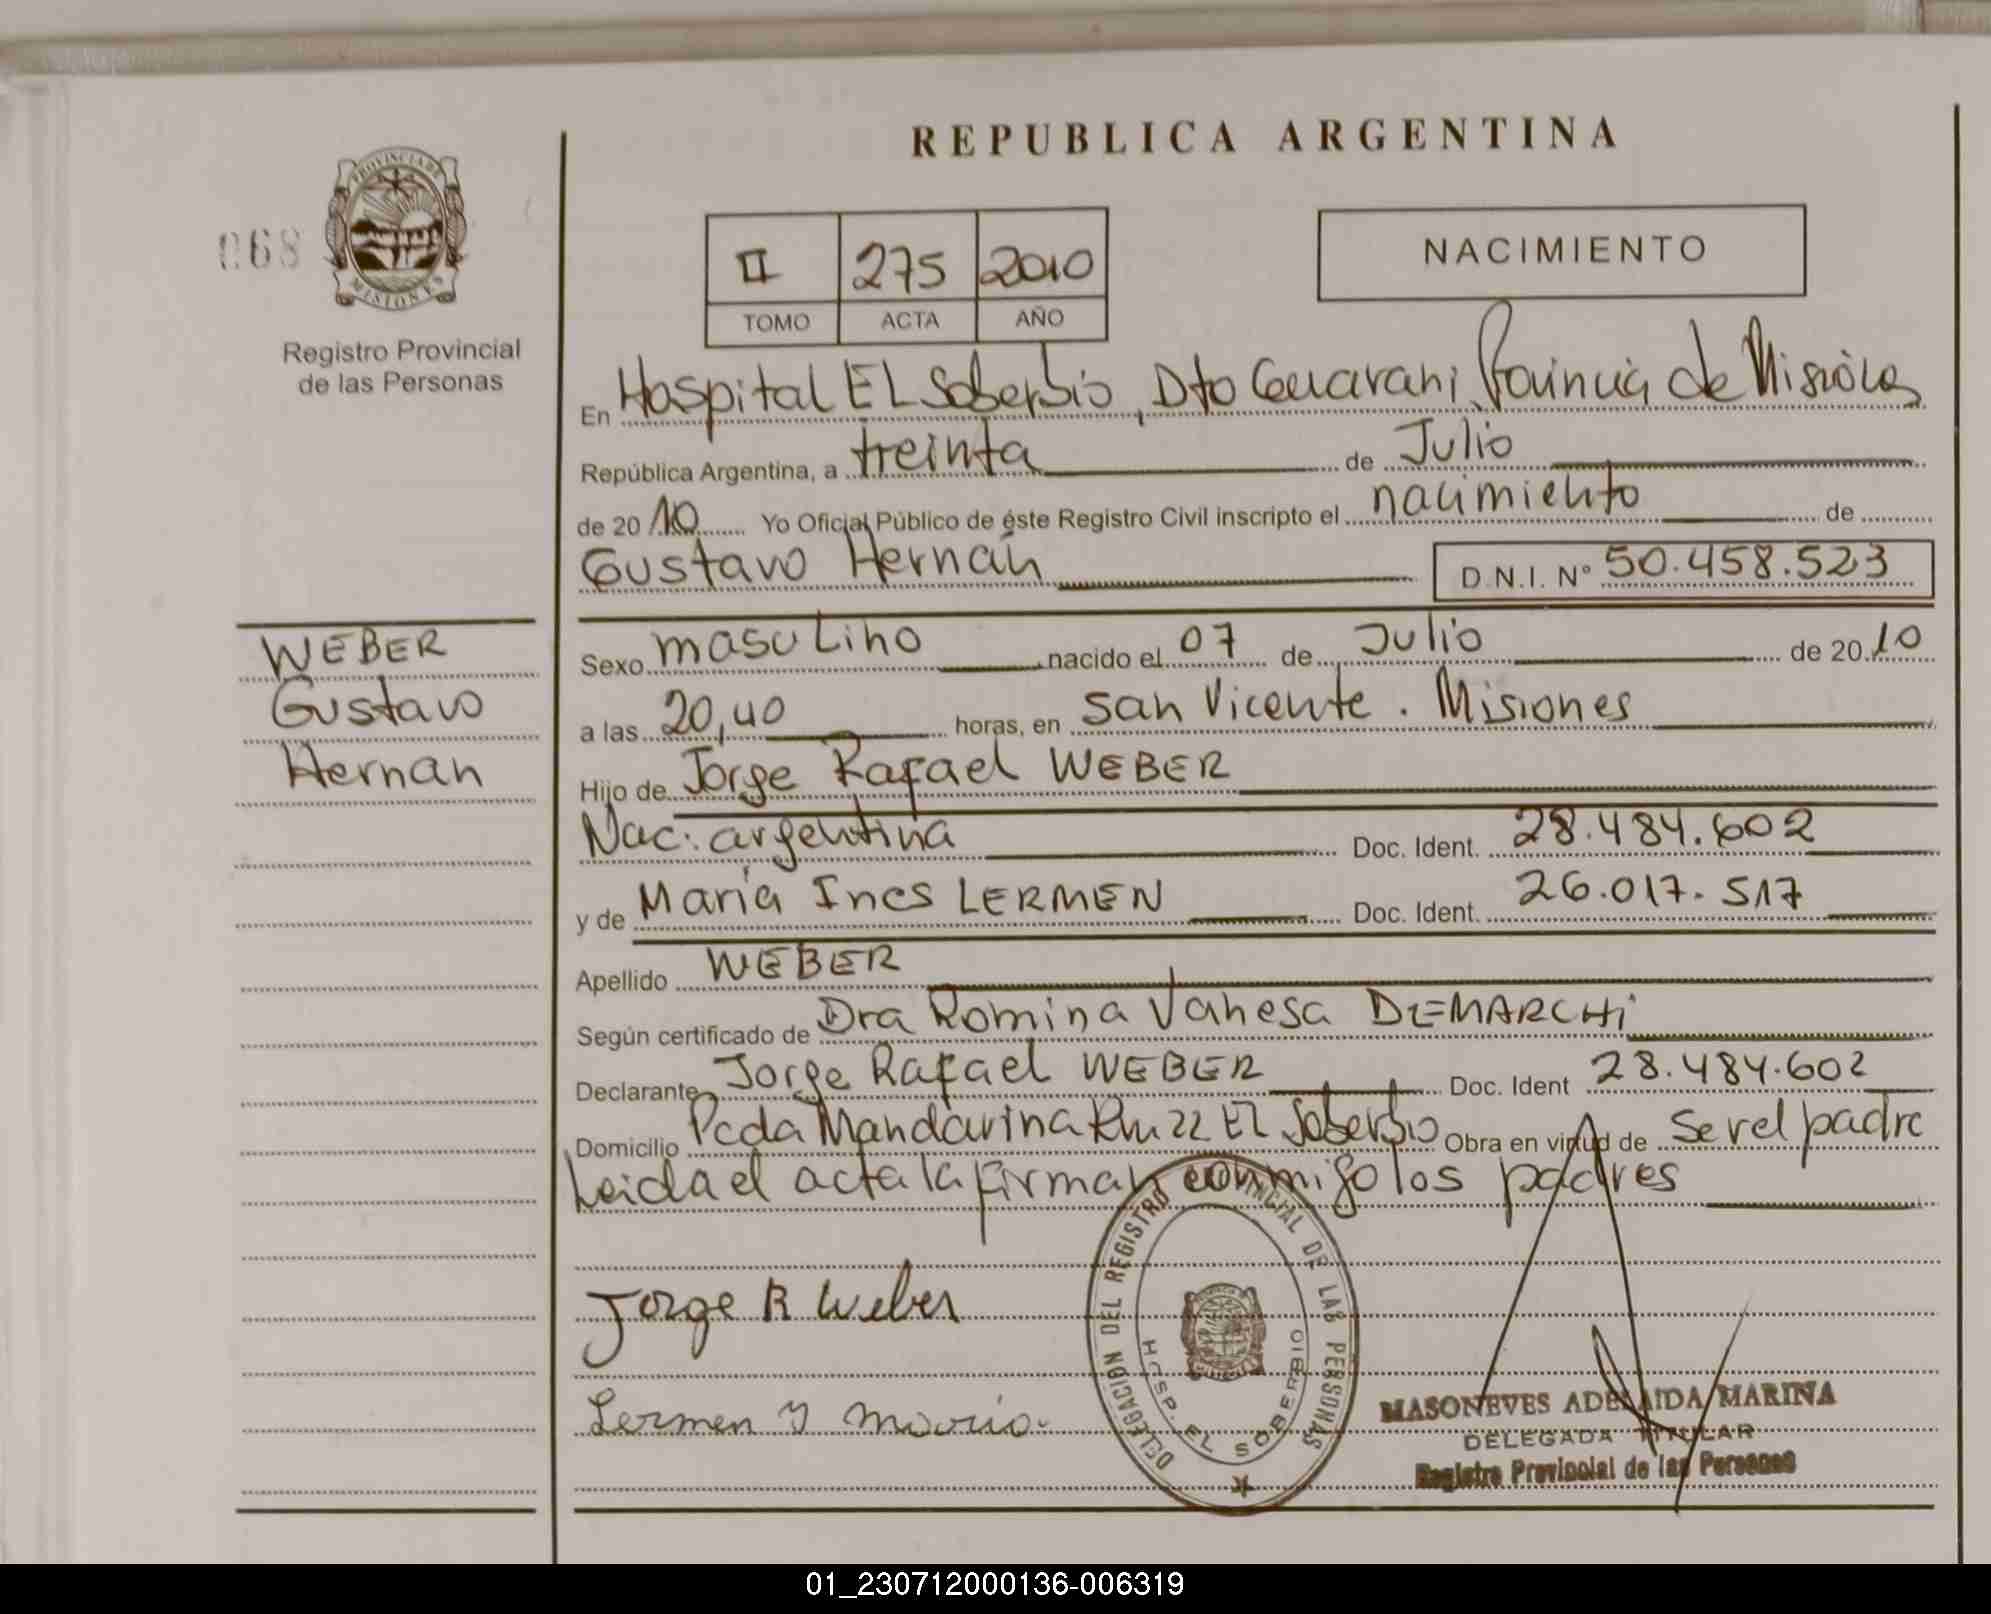 REPUBLICA ARGENTINA
068
PROVINCIA DE
MISIONES
Registro Provincial
de las Personas
II 275 2010
TOMO ACTA AÑO
NACIMIENTO
En Hospital EL Soberbio, Dto Guarani, Provincia de Misiones
República Argentina, a treinta de Julio
de 2010 Yo Oficial Público de éste Registro Civil inscripto el nacimiento de
Gustavo Hernán D.N.I. N° 50.458.523
WEBER
Gustavo
Hernan
Sexo masculino nacido el 07 de Julio de 2010
a las 20,40 horas, en San Vicente. Misiones
Hijo de Jorge Rafael WEBER
Nac: argentina Doc. Ident. 28.484.602
y de Maria Ines LERMEN Doc. Ident. 26.017.517
Apellido WEBER
Según certificado de Dra Romina Vanesa DEMARCHi
Declarante Jorge Rafael WEBER Doc. Ident 28.484.602
Domicilio Pcda Mandarina Km 22 El Soberbio Obra en virtud de ser el padre
Leida el acta la firman conmigo los padres
Jorge R Weber
Lermen y
DELEGACION DEL REGISTRO PROVINCIAL DE LAS PERSONAS
HOSP. EL SOBERBIO
MASONEVES ADELAIDA MARINA
DELEGADA TITULAR
Registro Provincial de las Personas
01_230712000136-006319